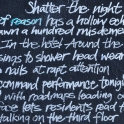 Shatter the night
of reason has a hollow ech
awn a hundred misdemea
In the hotel Around the
sings to shower head wear
nails at rapt attention
command performance tonig
with roadmaps leading o
face lets residents read f
talking on the third floor